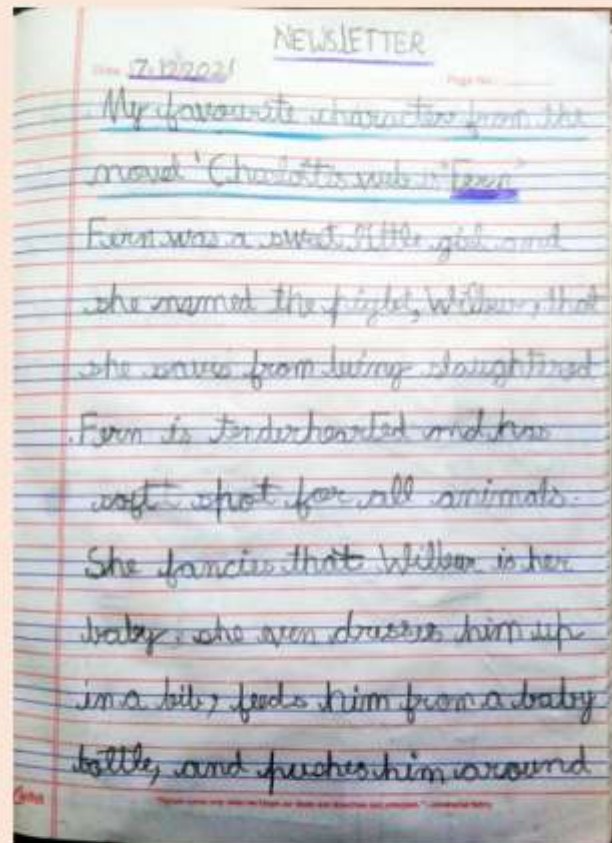 NEWSLETTER
Date 17.12.2021 Page No.:
My favourite character from the
novel 'Charlotte's web is "Fern"
Fern was a sweet little girl and
she named the piglet, Wilbur, that
she saves from being slaughtered
.Fern is tenderhearted and has
soft spot for all animals.
She fancies that Wilbur is her
baby. she even dresses him up
in a bib, feeds him from a baby
bottle, and pushes him around